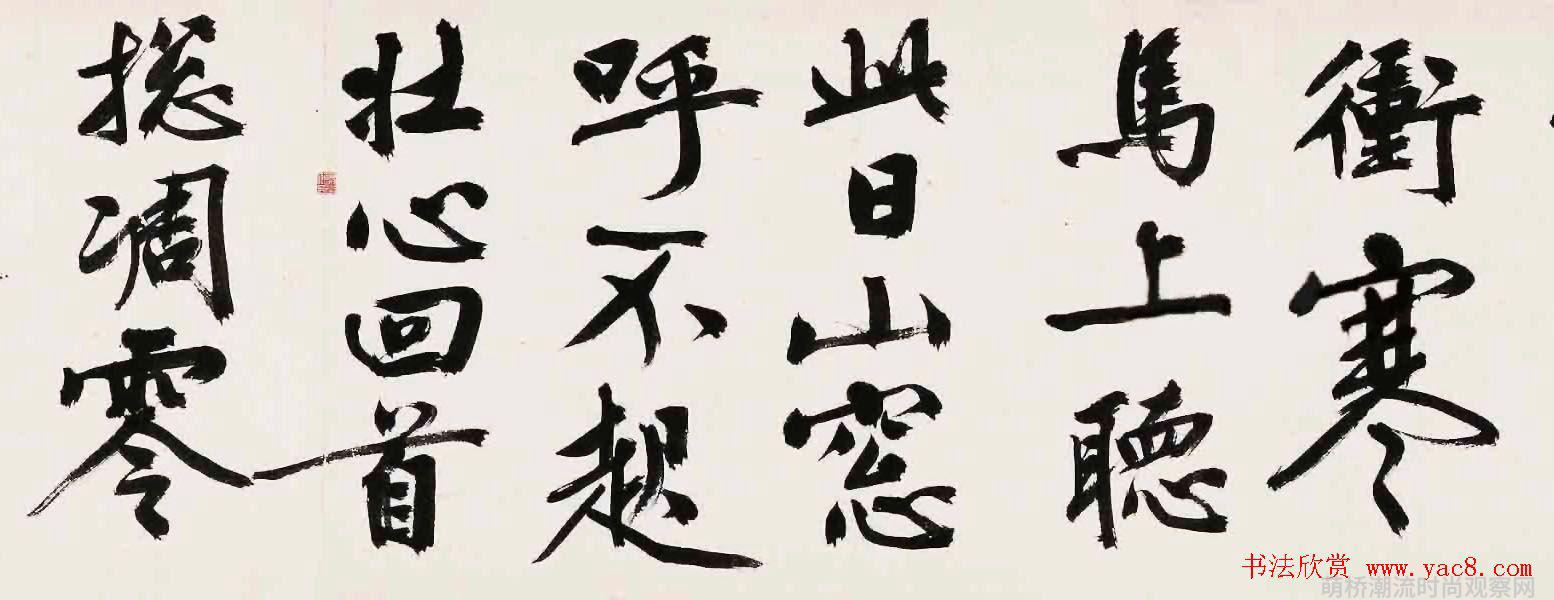 衝寒
馬上聽
此日山窓
呼不起
壮心回首
揔凋零
书法欣赏 www.yac8.com
萌桥潮流时尚观察网